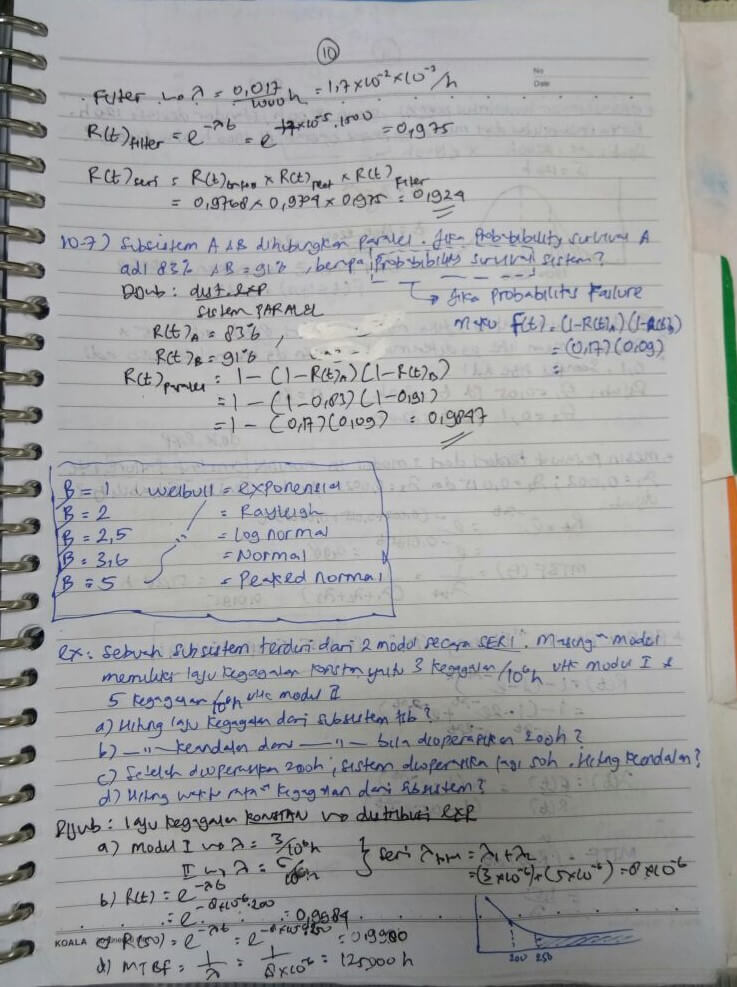 10
No
Date
Filter ↳ λ = 0,017/1000h = 1,7×10⁻² × 10⁻³/h
R(t)filter = e^-λt = e^-17×10⁻⁵.1500 = 0,975
R(t)seri = R(t) × R(t) × R(t) Filter
= 0,9768 × 0,9704 × 0,975 = 0,924
10-7) Subsistem A & B dihubungkan paralel. Jika Probability survival A
adl 83% & B = 91%, berapa Probability survival sistem?
Djwb : dist. exp → Jika probability Failure
sistem PARALEL
maka F(t) = (1-R(t)A)(1-R(t)B)
R(t)A = 83%,
= (0,17)(0,09)
R(t)B = 91%
=
R(t)paralel = 1 - (1-R(t)A)(1-R(t)B)
= 1 - (1-0,83)(1-0,91)
= 1 - (0,17)(0,09) = 0,9847
B = 1 weibull = exponensial
B = 2 = Rayleigh
B = 2,5 = Log normal
B = 3,6 = Normal
B = 5 = Peaked normal
ex: Sebuah subsistem terdiri dari 2 modul secara SERI. Masing" modul
memiliki laju kegagalan konstan yaitu 3 kegagalan/10⁶h utk modul I &
5 kegagalan/10⁶h utk modul II
a) Hitung laju kegagalan dari subsistem tsb?
b) —"— keandalan dari —"— bila dioperasikan 200h?
c) Setelah dioperasikan 200h, sistem dioperasikan lagi 50h. Hitung keandalan?
d) Hitung waktu rata" kegagalan dari subsistem?
Djwb: laju kegagalan KONSTAN ↳ distribusi EXP
a) modul I ↳ λ = 3/10⁶h } seri λ = λ1+λ2
II ↳ λ = 5/10⁶h = (3×10⁻⁶)+(5×10⁻⁶) = 8×10⁻⁶
b) R(t) = e^-λt
= e^-8×10⁻⁶.200 = 0,9984
c) R(50) = e^-λt = = 0,9980
KOALA
200 250
d) MTBF = 1/λ = 1/8×10⁻⁶ = 125000 h